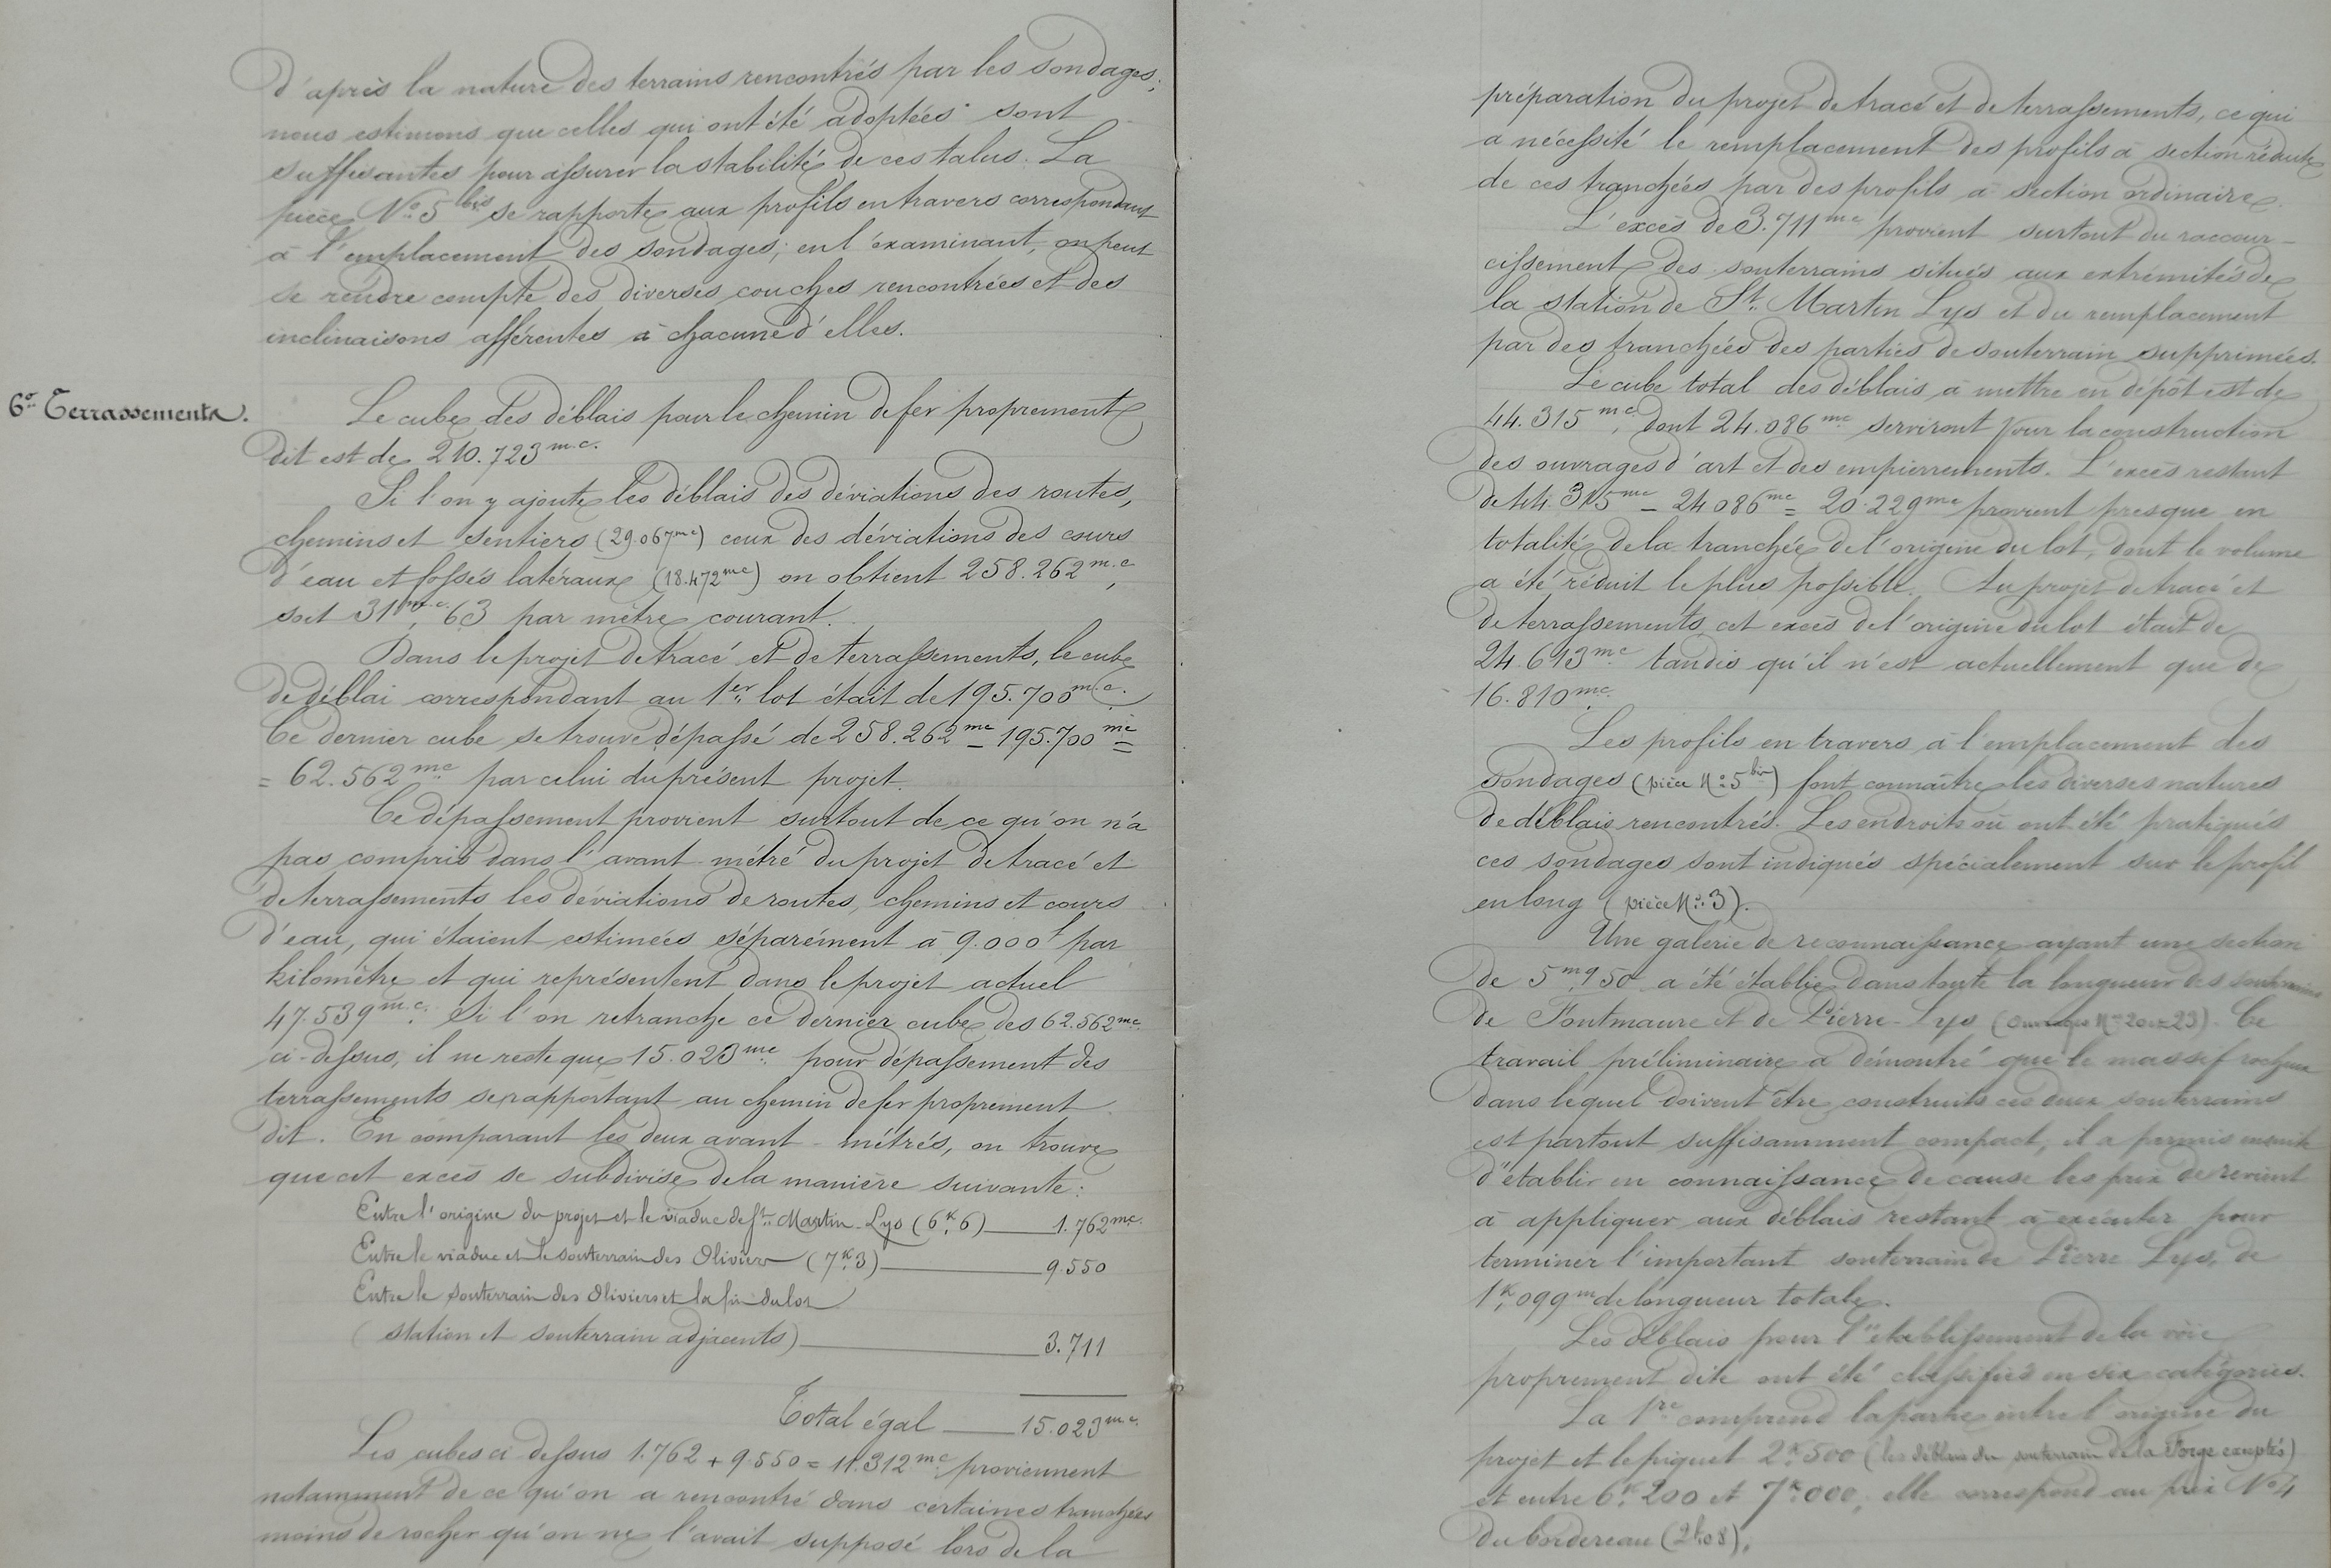 d'après la nature des terrains rencontrés par les sondages;
nous estimons que celles qui ont été adoptées sont
suffisantes pour assurer la stabilité de ces talus. La
pièce No 5 bis se rapporte aux profils en travers correspondant
à l'emplacement des sondages; en l'examinant, on peut
se rendre compte des diverses couches rencontrées et des
inclinaisons afférentes à chacune d'elles.
6o Terrassements.
Le cube des déblais pour le chemin de fer proprement
dit est de 210.723 m.c.
Si l'on y ajoute les déblais des déviations des routes,
chemins et sentiers (29.067mc) ceux des déviations des cours
d'eau et fossés latéraux (18.472mc) on obtient 258.262m.c,
soit 31m.c,63 par mètre courant.
Dans le projet de tracé et de terrassements, le cube
de déblai correspondant au 1er lot était de 195.700m.c.
Ce dernier cube se trouve dépassé de 258.262mc - 195.700mc =
= 62.562mc par celui du présent projet.
Ce dépassement provient surtout de ce qu'on n'a
pas compris dans l'avant-métré du projet de tracé et
de terrassements les déviations de routes, chemins et cours
d'eau, qui étaient estimées séparément à 9.000f par
kilomètre et qui représentent dans le projet actuel
47.539m.c. Si l'on retranche ce dernier cube des 62.562mc
ci-dessus, il ne reste que 15.023mc pour dépassement des
terrassements se rapportant au chemin de fer proprement
dit. En comparant les deux avant-métrés, on trouve
que cet excès se subdivise de la manière suivante:
Entre l'origine du projet et le viaduc de St. Martin-Lys (6k.6) 1.762mc.
Entre le viaduc et le souterrain des Oliviers (7k.3) 9.550
Entre le souterrain des Oliviers et la fin du lot
(station et souterrain adjacents) 3.711
Total égal 15.023m.c.
Les cubes ci dessus 1.762 + 9.550 = 11.312mc proviennent
notamment de ce qu'on a rencontré dans certaines tranchées
moins de rocher qu'on ne l'avait supposé lors de la
préparation du projet de tracé et de terrassements, ce qui
a nécessité le remplacement des profils à section réduite
de ces tranchées par des profils à section ordinaire.
L'excès de 3.711mc provient surtout du raccour-
cissement des souterrains situés aux extrémités de
la station de St. Martin Lys et du remplacement
par des tranchées des parties de souterrain supprimées.
Le cube total des déblais à mettre en dépôt est de
44.315mc, dont 24.086mc serviront pour la construction
des ouvrages d'art et des empierrements. L'excès restant
de 44.315mc - 24086mc = 20.229mc provient presque en
totalité de la tranchée de l'origine du lot, dont le volume
a été réduit le plus possible. Au projet de tracé et
de terrassements cet excès de l'origine du lot était de
24.613mc tandis qu'il n'est actuellement que de
16.810mc.
Les profils en travers à l'emplacement des
sondages (pièce No 5 bis) font connaître les diverses natures
de déblais rencontrés. Les endroits où ont été pratiqués
ces sondages sont indiqués spécialement sur le profil
en long (pièce No 3).
Une galerie de reconnaissance ayant une section
de 5mq,50 a été établie dans toute la longueur des souterrains
de Fontmaure et de Pierre-Lys (Ouvrages Nos 20 et 23). Ce
travail préliminaire a démontré que le massif rocheux
dans lequel doivent être construits ces deux souterrains
est partout suffisamment compact, il a permis ensuite
d'établir en connaissance de cause les prix de revient
à appliquer aux déblais restant à exécuter pour
terminer l'important souterrain de Pierre Lys, de
1k,099m de longueur totale.
Les déblais pour l'établissement de la voie
proprement dite ont été classifiés en six catégories.
La 1re comprend la partie entre l'origine du
projet et le piquet 2k.500 (les déblais du souterrain de la Forge exceptés)
et entre 6k.200 et 7k.000; elle correspond au prix No 4
du bordereau (2f.08),